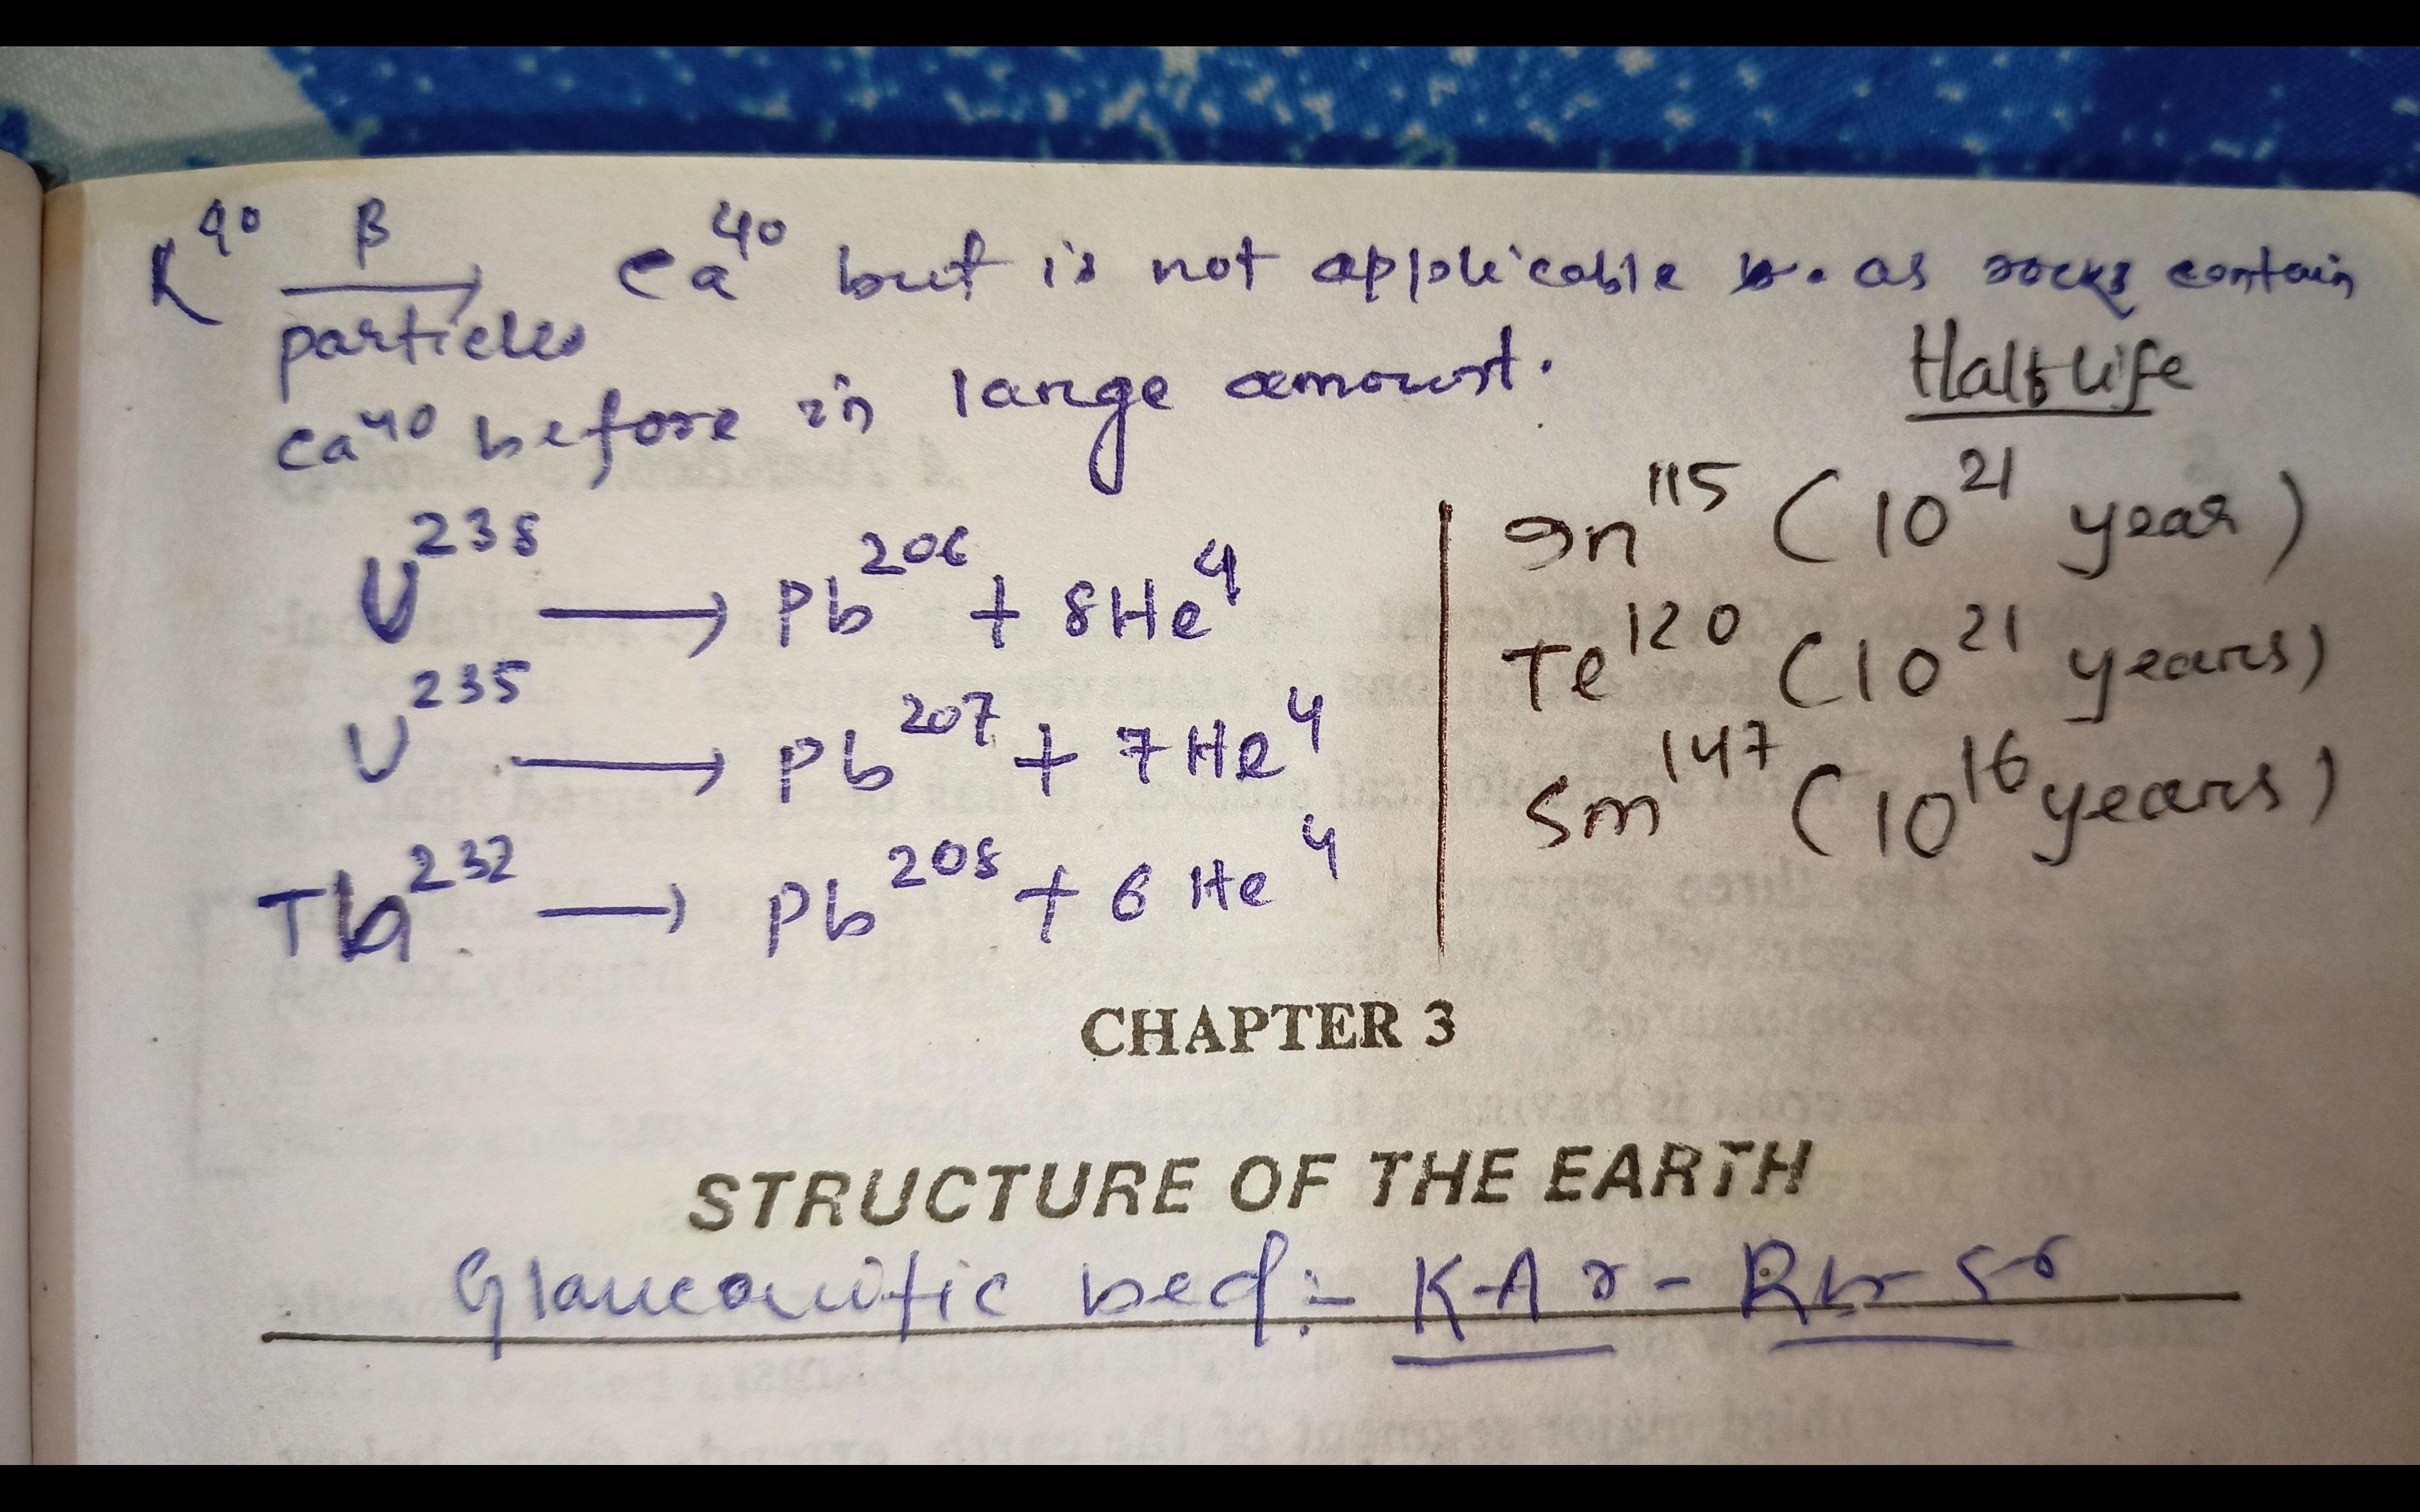 K⁴⁰ β particles → Ca⁴⁰ but is not applicable as rocks contain
Ca⁴⁰ before in large amount.
U²³⁸ → Pb²⁰⁶ + 8He⁴
U²³⁵ → Pb²⁰⁷ + 7He⁴
Th²³² → Pb²⁰⁸ + 6He⁴
Half life
In¹¹⁵ (10²¹ year)
Te¹²⁰ (10²¹ years)
Sm¹⁴⁷ (10¹⁶ years)
CHAPTER 3
STRUCTURE OF THE EARTH
Glauconitic bed:- K-Ar - Rb-Sr